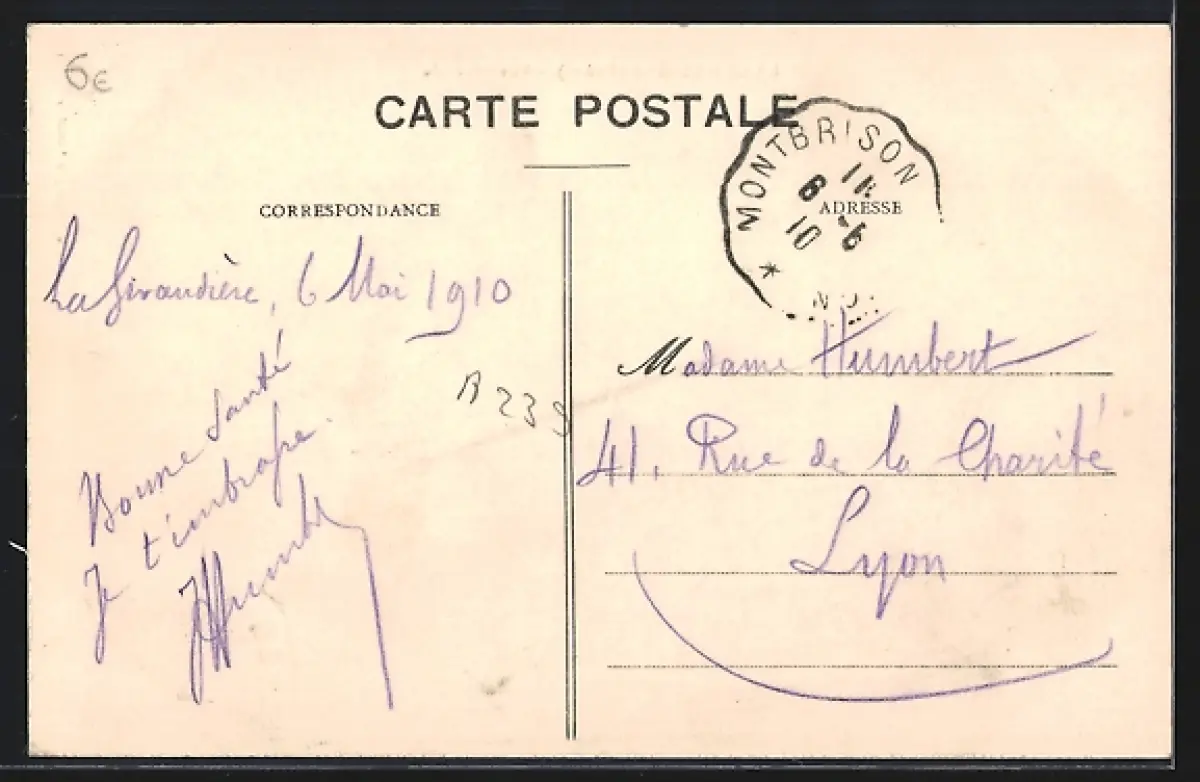 6€
CARTE POSTALE
MONTBRISON
6 -5
10
CORRESPONDANCE
ADRESSE
La Girandière, 6 Mai 1910
Bonne santé
Je t'embrasse.
Madame Humbert
41, Rue de la Charité
Lyon